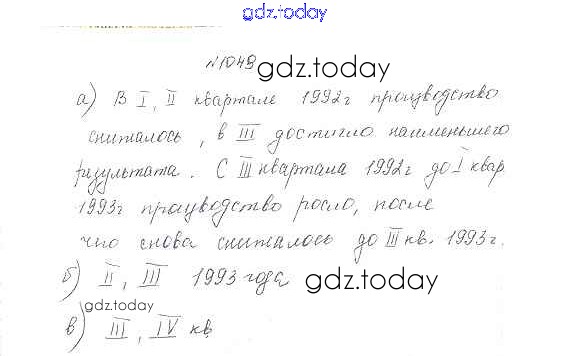 gdz.today
№1049
gdz.today
а) В I, II квартале 1992г производство
снижалось, в III достигло наименьшего
результата. С III квартала 1992г до I квар.
1993г производство росло, после
чего снова снижалось до III кв. 1993г.
б) II, III 1993 года
gdz.today
gdz.today
в) III, IV кв